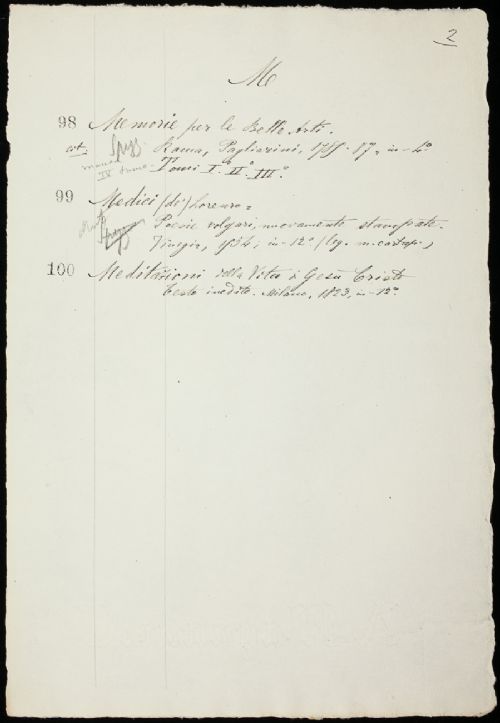 2
M
98 Memorie per le Belle Arti.
Roma, Pagliarini, 1785-87, in-4°
Tomi I.° II.° III.°
manca
IV tomo
99 Medici (de') Lorenzo =
Poesie volgari, nuovamente stampate.
in-12° (leg. m.
100 Meditazioni della Vita di Gesù Cristo
Testo inedito. Milano, 1823, in-12°